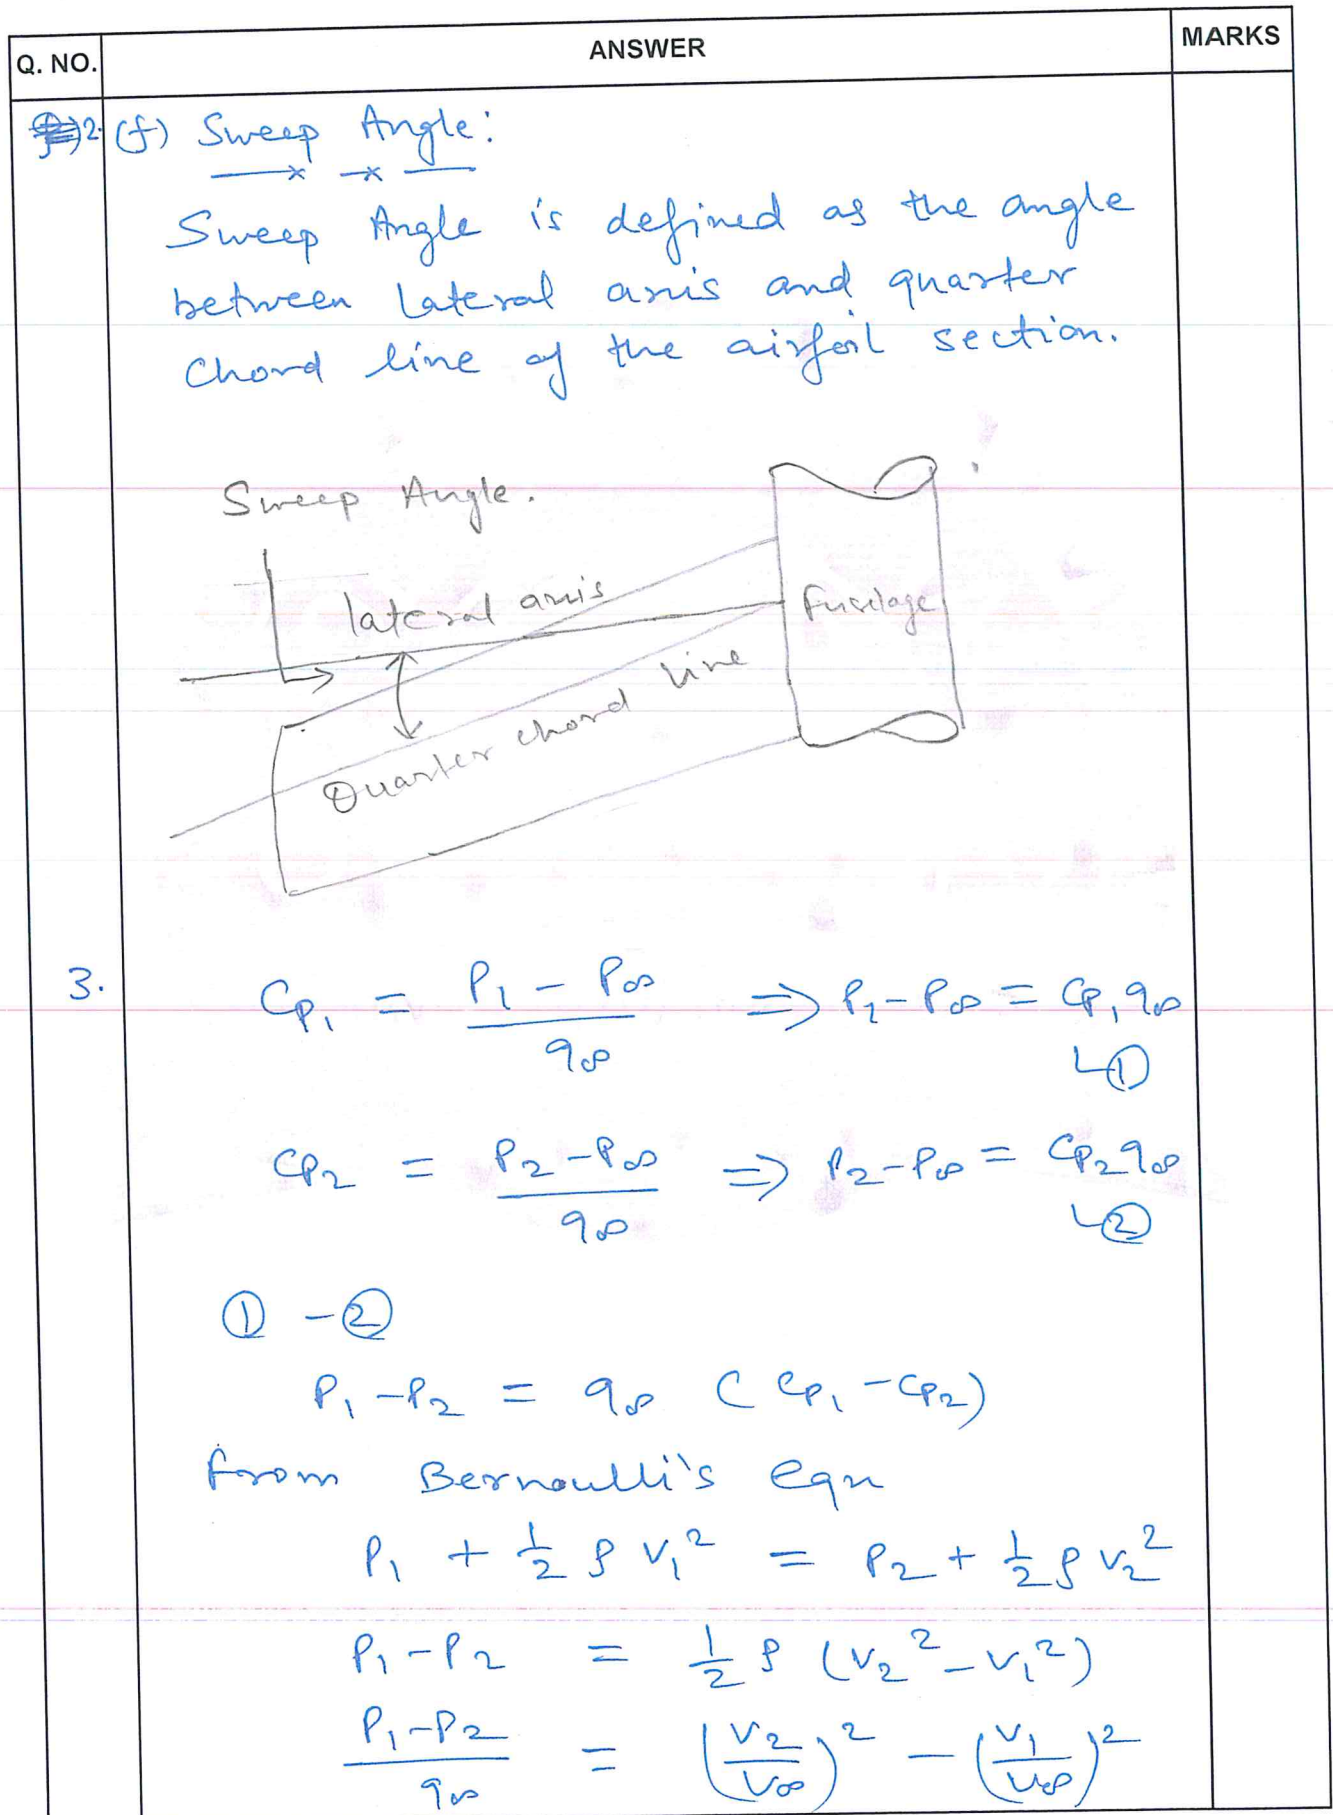 Q. NO. ANSWER MARKS
2. (f) Sweep Angle:
Sweep Angle is defined as the angle
between lateral axis and quarter
chord line of the airfoil section.
Sweep Angle.
lateral axis
fuselage
Quarter chord line
3. Cp₁ = P₁ - P∞ / q∞ ⇒ P₁ - P∞ = Cp₁ q∞
↳①
Cp₂ = P₂ - P∞ / q∞ ⇒ P₂ - P∞ = Cp₂ q∞
↳②
① - ②
P₁ - P₂ = q∞ (Cp₁ - Cp₂)
from Bernoulli's eqn
P₁ + ½ ρ V₁² = P₂ + ½ ρ V₂²
P₁ - P₂ = ½ ρ (V₂² - V₁²)
P₁ - P₂ / q∞ = (V₂ / V∞)² - (V₁ / V∞)²